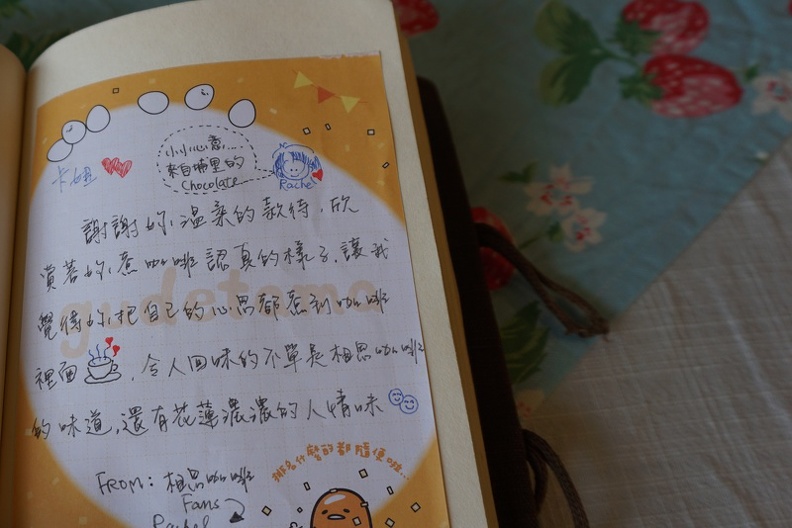 小小心意...
來自埔里的
Chocolate
Rachel
卡妞
謝謝妳溫柔的款待,欣
賞著妳煮咖啡認真的樣子,讓我
覺得妳把自己的心思都煮到咖啡
裡面,令人回味的不單是相思咖啡
的味道,還有花蓮濃濃的人情味
gudetama
FROM:相思咖啡
Fans
Rachel
排名什麼的都隨便啦...